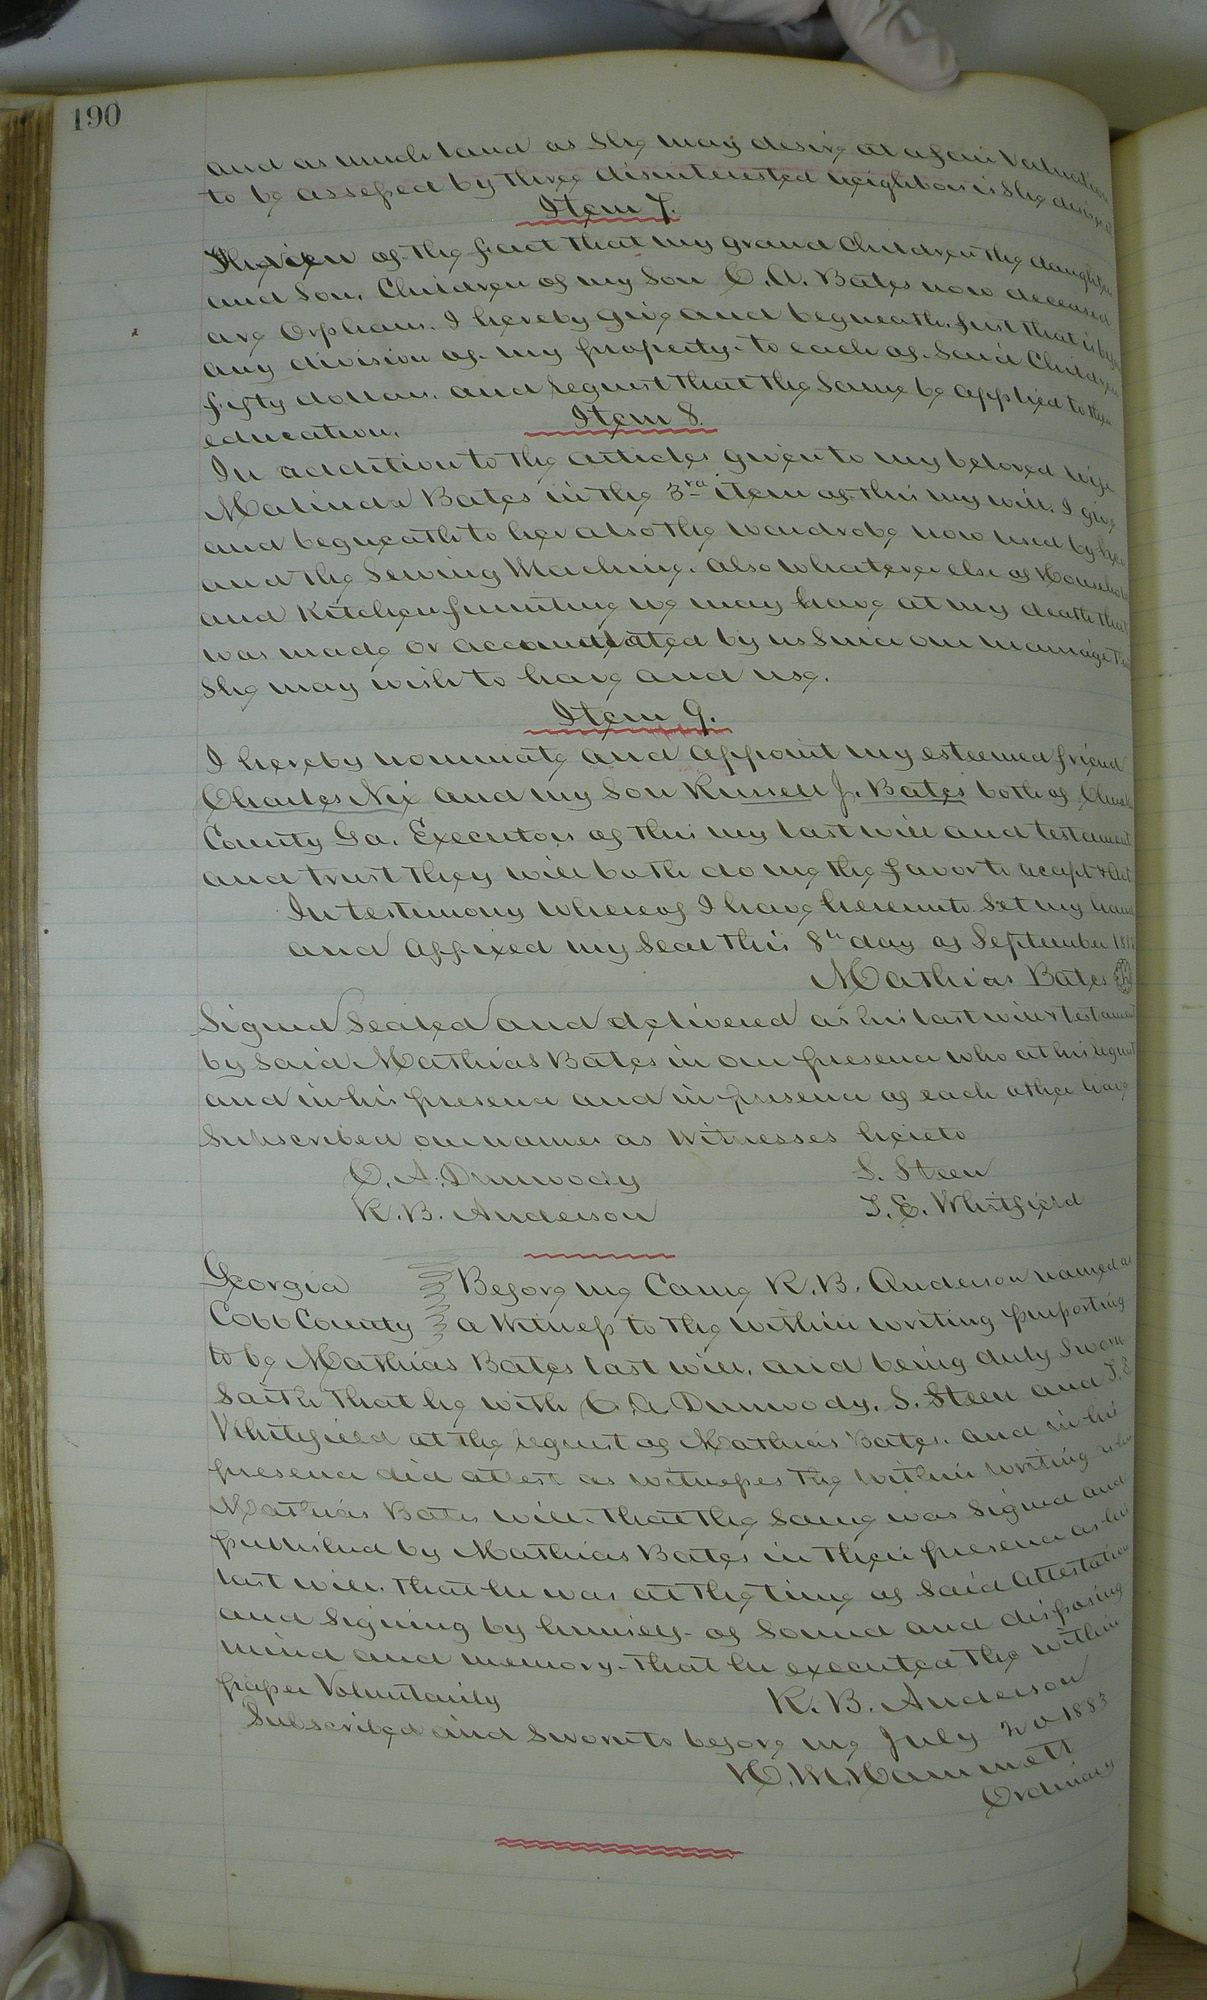 190
and as much land as she may desire at a fair Valuation
to be assessed by three disinterested neighbors is she desires it
Item 7.
In view of the fact that my grand Children the daughter
and Son, Children of my Son C. A. Bates now deceased
are Orphans. I hereby give and bequeath first that is before
any division of my property to each of said Children
fifty dollars. and request that the same be applied to their
education.
Item 8.
In addition to the articles given to my beloved wife
Malinda Bates in the 3rd item of this my will. I give
and bequeath to her also the wardrobe now used by her
and the Sewing Machine. also whatever else of Household
and Kitchen furniture we may have at my death that
was made or accumulated by us Since our marriage that
She may wish to have and use.
Item 9.
I hereby nominate and appoint my esteemed friend
Charles Nix and my Son Russell J. Bates both of
County Ga. Executors of this my last will and testament
and trust they will both do me the favor to accept & Act
In testimony whereof I have hereunto Set my hand
and affixed my Seal this 8th day of September
Mathias Bates
Signed Sealed and delivered as his last will & testament
by Said Mathias Bates in our presence who at his request
and in his presence and in presence of each other have
Subscribed our names as Witnesses hereto
C. A. Dunwody S. Steen
R. B. Anderson T. E. Whitfield
Georgia Before me Came R. B. Anderson named as
Cobb County a Witness to the within writing purporting
to be Mathias Bates last will, and being duly Sworn
Saith that he with C. A. Dunwody, S. Steen and T. E.
Whitfield at the request of Mathias Bates. and in his
presence did attest as witnesses the within writing as
Mathias Bates will. that the Same was Signed and
published by Mathias Bates in their presence as his
last will. that he was at the time of Said Attestation
and Signing by himself of Sound and disposing
mind and memory. that he executed the within
paper Voluntarily R. B. Anderson
Subscribed and Sworn to before me July 2d 1883
H. M. Hammett
Ordinary